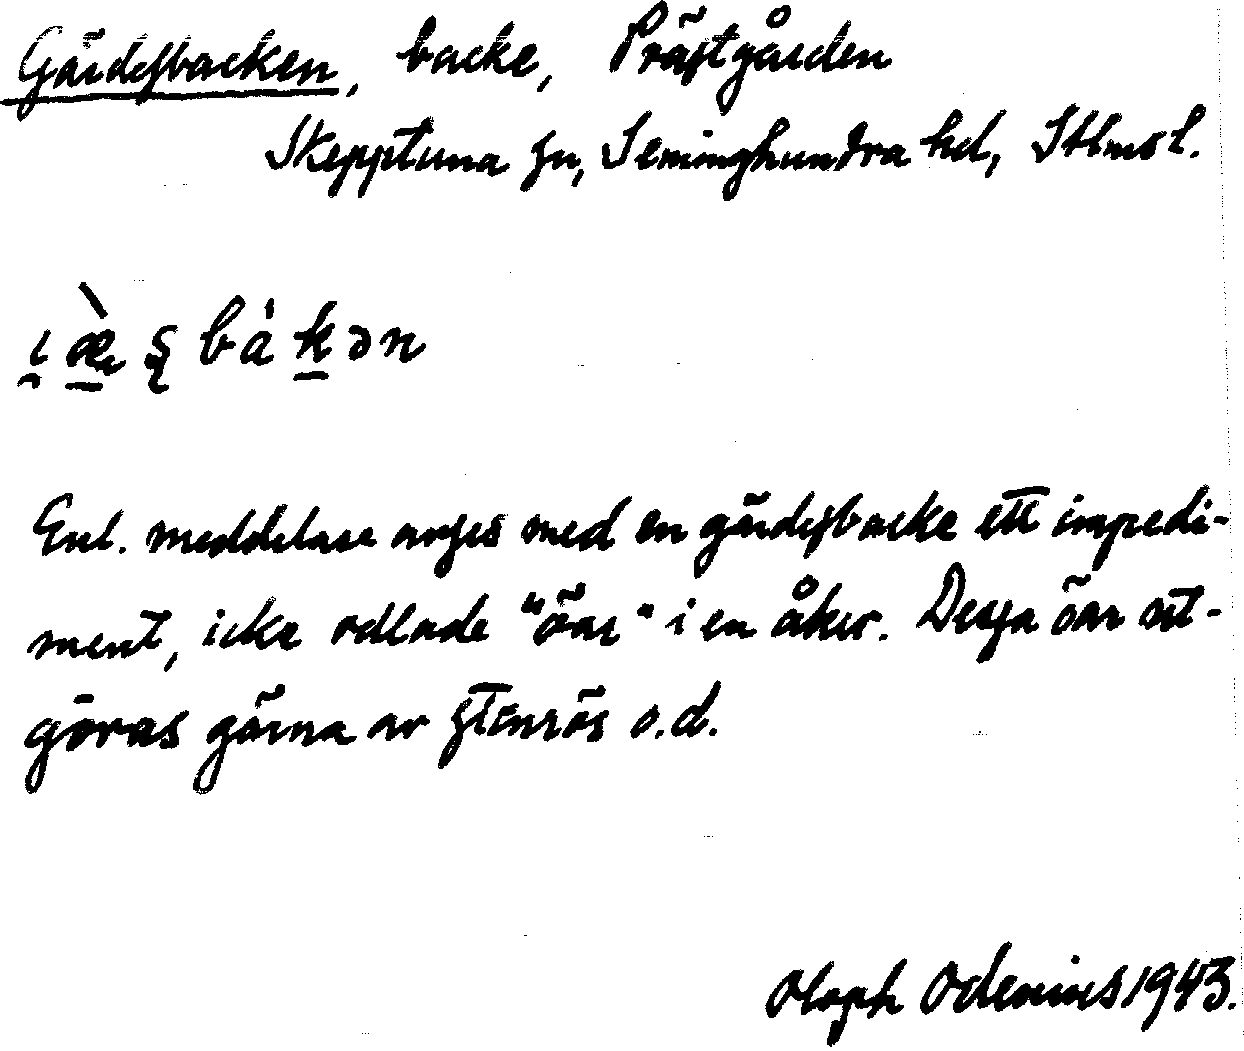 Gärdesbacken, backe, Prästgården
Skepptuna sn, Seminghundra hd, Sthms l.
bàkən
Enl. meddelare anges med en gärdesbacke ett impedi-
ment, icke odlade "öar" i en åker. Dessa öar ut-
göras gärna av stenrös o.d.
Oloph Odenius 1943.